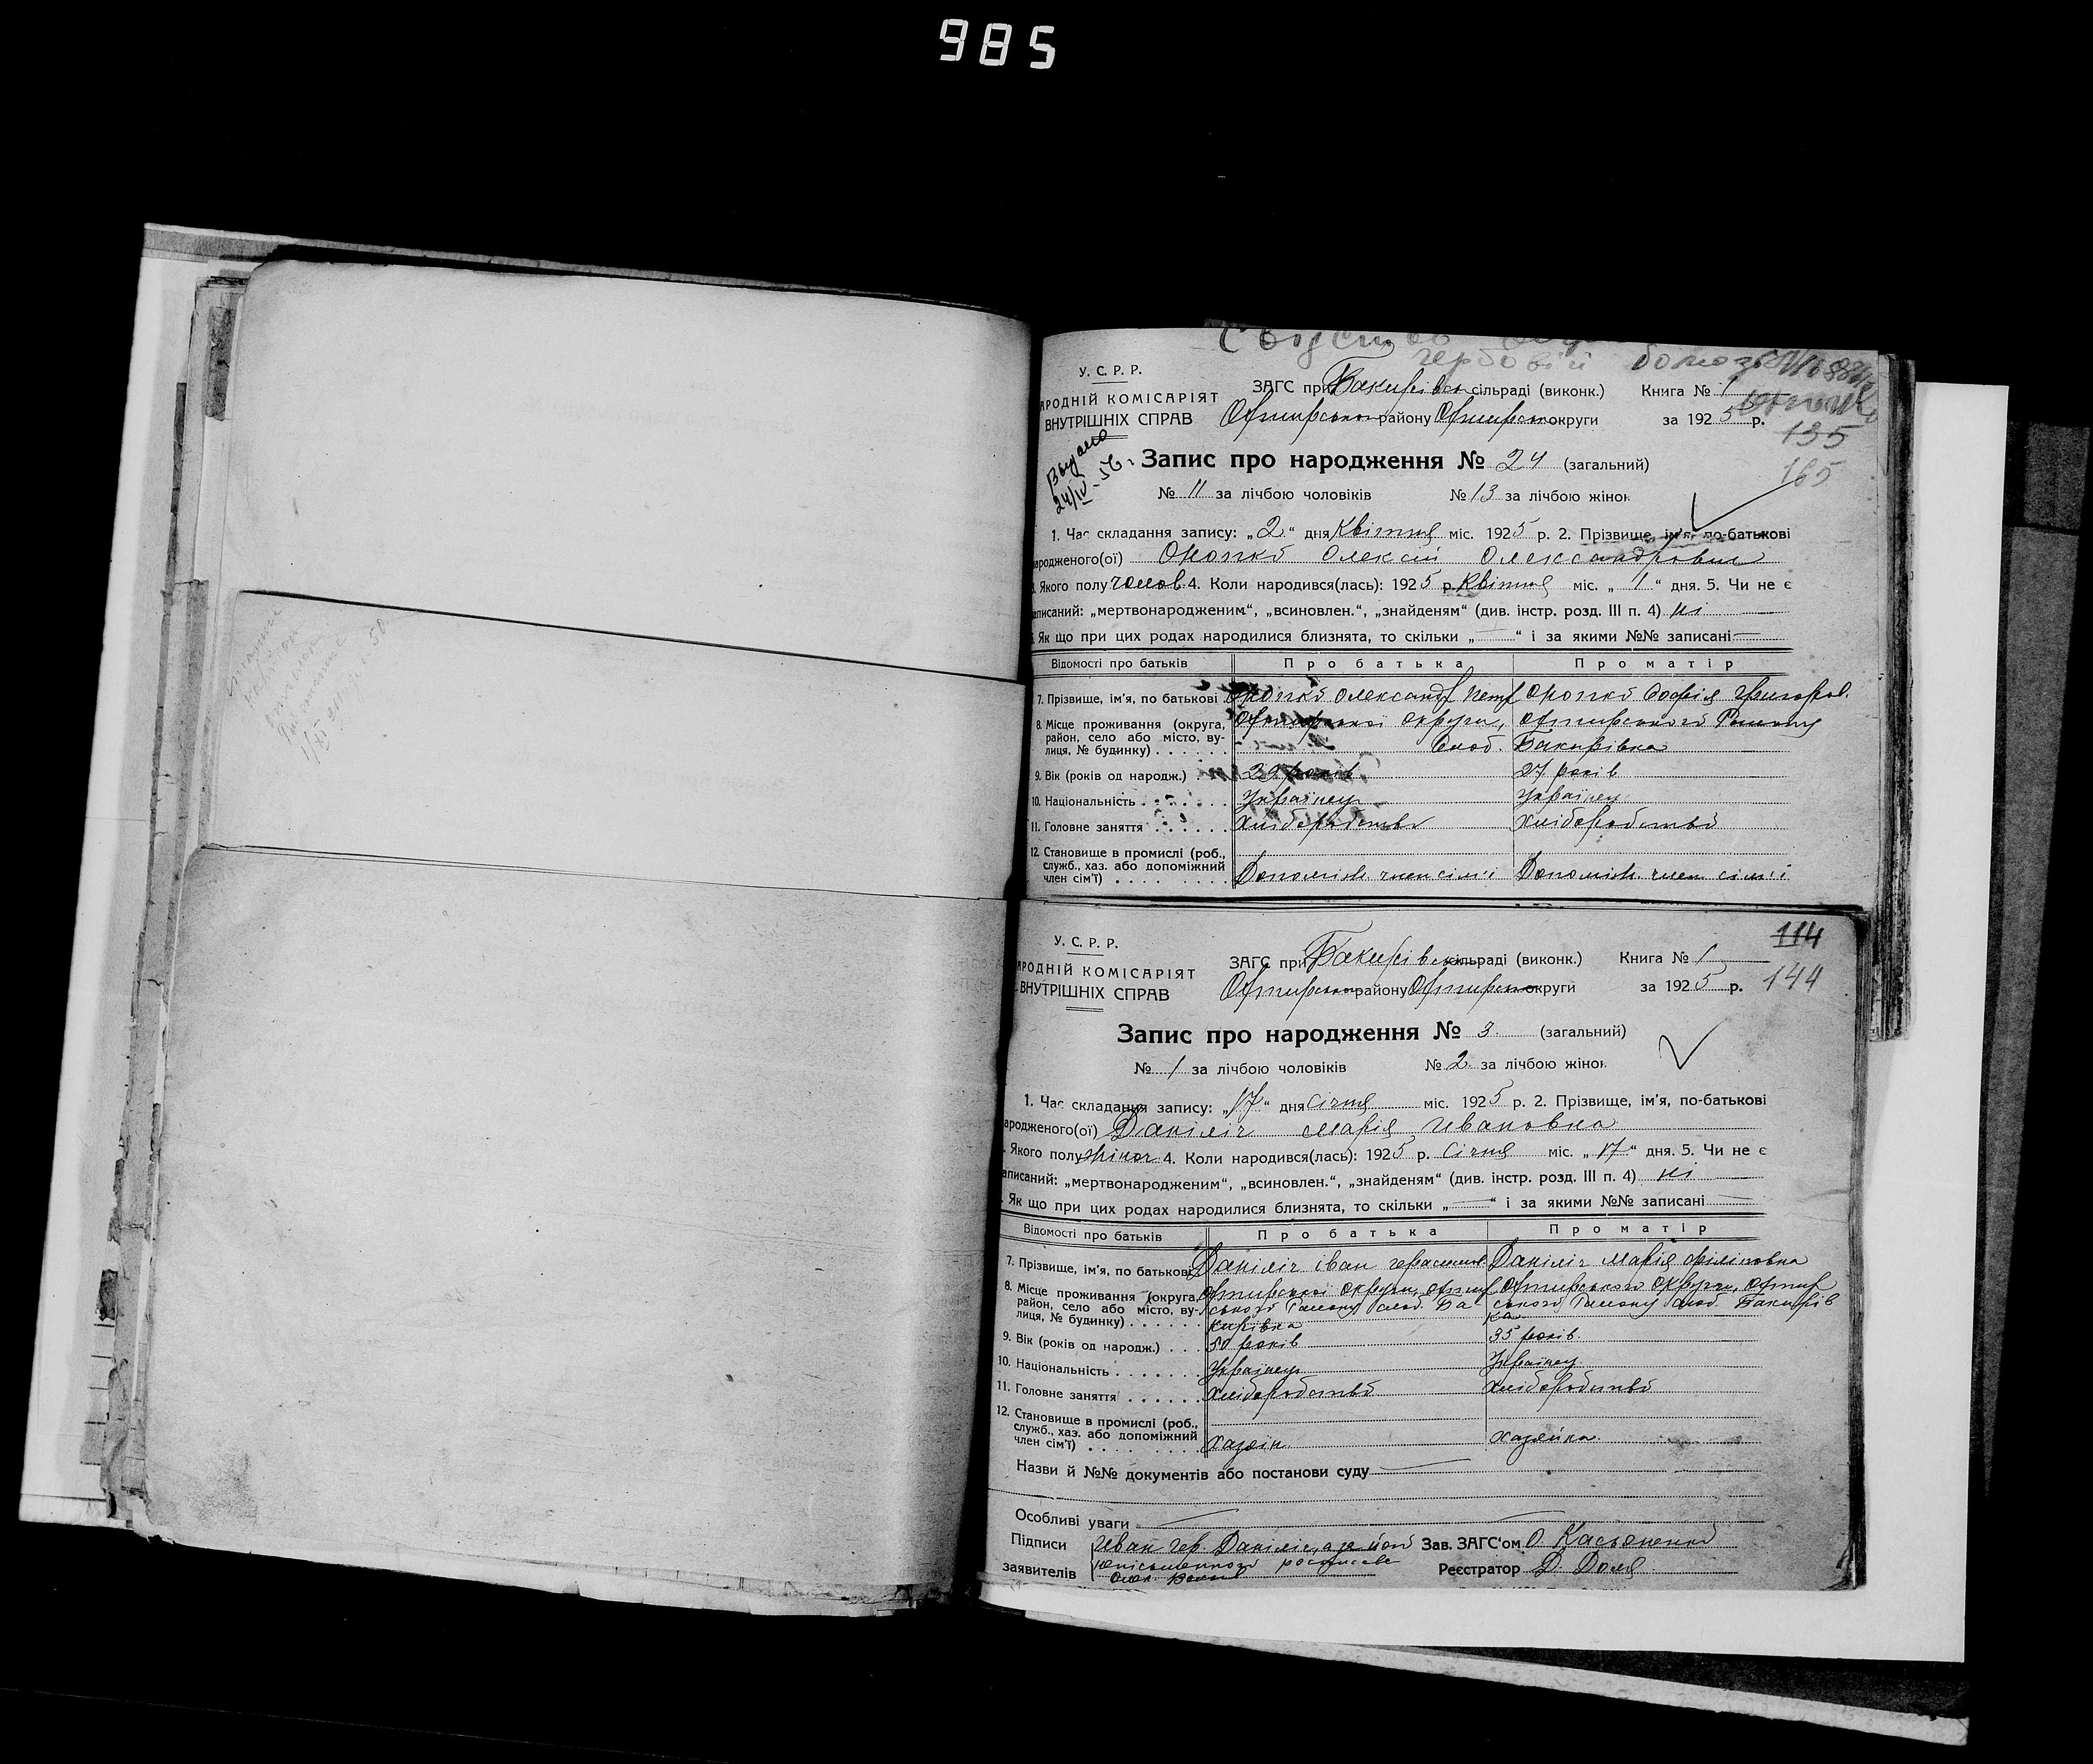 985
У. С. Р. Р.
АРОДНІЙ КОМІСАРІЯТ
ВНУТРІШНІХ СПРАВ
ЗАГС при Бакирівськ сільраді (виконк.) Книга № 1
району округи за 1925 р.
135
165
Выдано
24/IV-56
Запис про народження № 24 (загальний)
№ 11 за лічбою чоловіків № 13 за лічбою жінок
1. Час складання запису: „2“ дня Квітня міс. 1925 р. 2. Прізвище, ім'я, по-батькові
ародженого(ої) Олексій Олександрович
Якого полу чолов. 4. Коли народився(лась): 1925 р. Квітня міс. „1“ дня. 5. Чи не є
аписаний: „мертвонародженим“, „всиновлен.“, „знайденям“ (див. інстр. розд. III п. 4) ні
Як що при цих родах народилися близнята, то скільки „ “ і за якими №№ записані
Відомості про батьків Про батька Про матір
7. Прізвище, ім'я, по батькові Олександр Петр Софія Григоров.
8. Місце проживання (округа, округи, Охтирського Району
район, село або місто, ву-
лиця, № будинку) Слоб. Бакирівка
9. Вік (років од народж.) 29 років 27 років
10. Національність Українец Українец
11. Головне заняття Хліборобство Хліборобство
12. Становище в промислі (роб.,
служб., хаз. або допоміжний
член сім'ї) Допоміж. член сім'ї Допоміж. член сім'ї
114
144
У. С. Р. Р.
АРОДНІЙ КОМІСАРІЯТ
ВНУТРІШНІХ СПРАВ
ЗАГС при Бакирівськ сільраді (виконк.) Книга № 1
району округи за 1925 р.
Запис про народження № 3 (загальний)
№ 1 за лічбою чоловіків № 2 за лічбою жінок
1. Час складання запису: „17“ дня Січня міс. 1925 р. 2. Прізвище, ім'я, по-батькові
ародженого(ої) Даніліч Марія Ивановна
Якого полу жіноч 4. Коли народився(лась): 1925 р. Січня міс. „17“ дня. 5. Чи не є
аписаний: „мертвонародженим“, „всиновлен.“, „знайденям“ (див. інстр. розд. III п. 4) ні
Як що при цих родах народилися близнята, то скільки „ “ і за якими №№ записані
Відомості про батьків Про батька Про матір
7. Прізвище, ім'я, по батькові Даніліч Іван Герасимов Даніліч Марія Филіповна
8. Місце проживання (округа, Охтирської округи, Охтир Охтирського округи, Охтир
район, село або місто, ву- ського Району слоб. Ба- ського Району слоб. Бакирів
лиця, № будинку) кирівка ка
9. Вік (років од народж.) 50 років 35 років
10. Національність Українец Українец
11. Головне заняття Хліборобство Хліборобство
12. Становище в промислі (роб.,
служб., хаз. або допоміжний
член сім'ї) Хазяін Хазяйка
Назви й №№ документів або постанови суду
Особливі уваги
Підписи Иван Гер. Даніліч, а за його Зав. ЗАГС'ом О. Касьяненко
заявителів неписьменного росписався Реєстратор Д. Доля